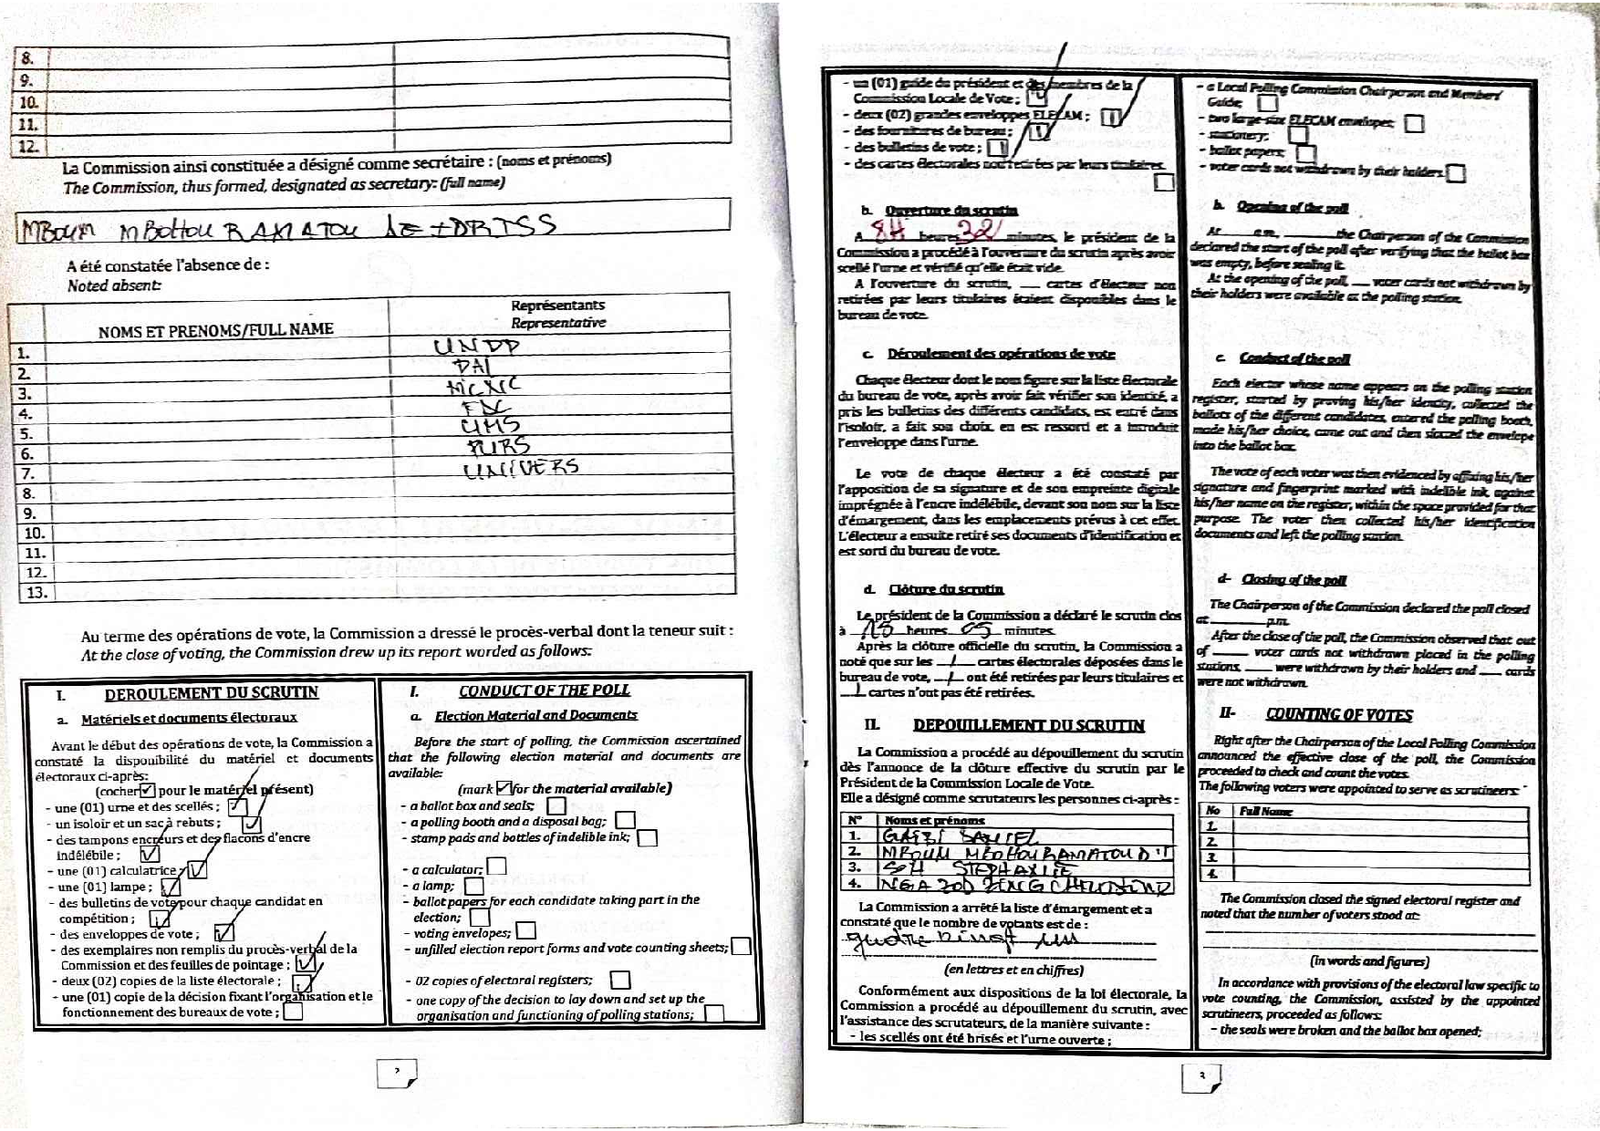 8.
9.
10.
11.
12.
La Commission ainsi constituée a désigné comme secrétaire : (noms et prénoms)
The Commission, thus formed, designated as secretary: (full name)
MBOUM MBOHOU RAMATOU
A été constatée l'absence de :
Noted absent:
NOMS ET PRENOMS/FULL NAME
Représentants
Representative
1. UNDP
2. PAL
3. MCNC
4. FDC
5. UMS
6. PURS
7. UNIVERS
8.
9.
10.
11.
12.
13.
Au terme des opérations de vote, la Commission a dressé le procès-verbal dont la teneur suit :
At the close of voting, the Commission drew up its report worded as follows:
I. DEROULEMENT DU SCRUTIN
a. Matériels et documents électoraux
Avant le début des opérations de vote, la Commission a
constaté la disponibilité du matériel et documents
électoraux ci-après:
(cocher pour le matériel présent)
- une (01) urne et des scellés ;
- un isoloir et un sac à rebuts ;
- des tampons encreurs et des flacons d'encre
indélébile ;
- une (01) calculatrice ;
- une [01] lampe ;
- des bulletins de vote pour chaque candidat en
compétition ;
- des enveloppes de vote ;
- des exemplaires non remplis du procès-verbal de la
Commission et des feuilles de pointage ;
- deux (02) copies de la liste électorale ;
- une (01) copie de la décision fixant l'organisation et le
fonctionnement des bureaux de vote ;
I. CONDUCT OF THE POLL
a. Election Material and Documents
Before the start of polling, the Commission ascertained
that the following election material and documents are
available:
(mark for the material available)
- a ballot box and seals;
- a polling booth and a disposal bag;
- stamp pads and bottles of indelible ink;
- a calculator;
- a lamp;
- ballot papers for each candidate taking part in the
election;
- voting envelopes;
- unfilled election report forms and vote counting sheets;
- 02 copies of electoral registers;
- one copy of the decision to lay down and set up the
organisation and functioning of polling stations;
2
- un (01) guide du président et des membres de la
Commission Locale de Vote ;
- deux (02) grandes enveloppes ELECAM ;
- des fournitures de bureau ;
- des bulletins de vote ;
- des cartes électorales non retirées par leurs titulaires.
b. Ouverture du scrutin
A 8H heures 32 minutes, le président de la
Commission a procédé à l'ouverture du scrutin après avoir
scellé l'urne et vérifié qu'elle était vide.
A l'ouverture du scrutin, ___ cartes d'électeur non
retirées par leurs titulaires étaient disponibles dans le
bureau de vote.
c. Déroulement des opérations de vote
Chaque électeur dont le nom figure sur la liste électorale
du bureau de vote, après avoir fait vérifier son identité, a
pris les bulletins des différents candidats, est entré dans
l'isoloir, a fait son choix, en est ressorti et a introduit
l'enveloppe dans l'urne.
Le vote de chaque électeur a été constaté par
l'apposition de sa signature et de son empreinte digitale
imprégnée à l'encre indélébile, devant son nom sur la liste
d'émargement, dans les emplacements prévus à cet effet.
L'électeur a ensuite retiré ses documents d'identification et
est sorti du bureau de vote.
d. Clôture du scrutin
Le président de la Commission a déclaré le scrutin clos
à heures 05 minutes.
Après la clôture officielle du scrutin, la Commission a
noté que sur les / cartes électorales déposées dans le
bureau de vote, / ont été retirées par leurs titulaires et
/ cartes n'ont pas été retirées.
II. DEPOUILLEMENT DU SCRUTIN
La Commission a procédé au dépouillement du scrutin
dès l'annonce de la clôture effective du scrutin par le
Président de la Commission Locale de Vote.
Elle a désigné comme scrutateurs les personnes ci-après :
N° Noms et prénoms
1.
2. MBOUM MBOHOU RAMATOU D
3. STEPHANIE
4. NGA ZENG
La Commission a arrêté la liste d'émargement et a
constaté que le nombre de votants est de :
quatre vingt
(en lettres et en chiffres)
Conformément aux dispositions de la loi électorale, la
Commission a procédé au dépouillement du scrutin, avec
l'assistance des scrutateurs, de la manière suivante :
- les scellés ont été brisés et l'urne ouverte ;
- a Local Polling Commission Chairperson and Members'
Guide;
- two large-size ELECAM envelopes;
- stationery;
- ballot papers;
- voter cards not withdrawn by their holders.
b. Opening of the poll
At ___ a.m, ___ the Chairperson of the Commission
declared the start of the poll after verifying that the ballot box
was empty, before sealing it.
At the opening of the poll, ___ voter cards not withdrawn by
their holders were available at the polling station.
c. Conduct of the poll
Each elector whose name appears on the polling station
register, started by proving his/her identity, collected the
ballots of the different candidates, entered the polling booth,
made his/her choice, came out and then slotted the envelope
into the ballot box.
The vote of each voter was then evidenced by affixing his/her
signature and fingerprint marked with indelible ink, against
his/her name on the register, within the space provided for that
purpose. The voter then collected his/her identification
documents and left the polling station.
d- Closing of the poll
The Chairperson of the Commission declared the poll closed
at ___ p.m.
After the close of the poll, the Commission observed that out
of ___ voter cards not withdrawn placed in the polling
stations, ___ were withdrawn by their holders and ___ cards
were not withdrawn.
II- COUNTING OF VOTES
Right after the Chairperson of the Local Polling Commission
announced the effective close of the poll, the Commission
proceeded to check and count the votes.
The following voters were appointed to serve as scrutineers:
No Full Name
1.
2.
3.
4.
The Commission closed the signed electoral register and
noted that the number of voters stood at:
(in words and figures)
In accordance with provisions of the electoral law specific to
vote counting, the Commission, assisted by the appointed
scrutineers, proceeded as follows:
- the seals were broken and the ballot box opened;
3